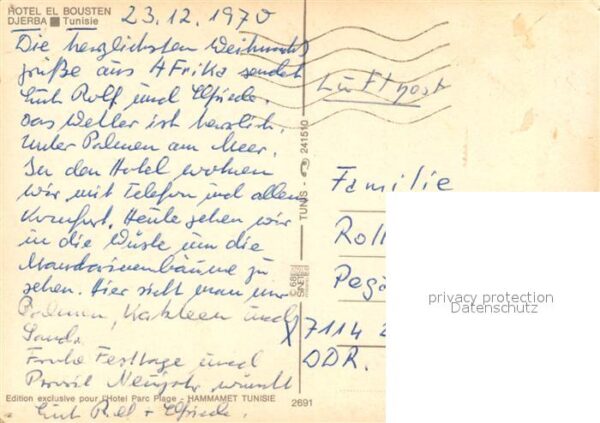 HOTEL EL BOUSTEN
DJERBA Tunisie
23.12.1970
Die herzlichsten Weihnachts
grüße aus Afrika sendet
Euch Rolf und Elfriede.
Das Wetter ist herrlich.
Unter Palmen am Meer.
In den Hotel wohnen
wir mit Telefon und allem
Komfort. Heute gehen wir
in die Wüste um die
Mandarinenbäume zu
sehen. Hier sieht man nur
Palmen, Kakteen und
Sand.
Frohe Festtage und
Prosit Neujahr wünscht
Euch Rolf + Elfriede.
Luftpost
Familie
Roll
Pegå
7114
DDR.
TUNIS - 241510
Edition exclusive pour l'Hotel Parc Plage - HAMMAMET TUNISIE
2691
privacy protection
Datenschutz